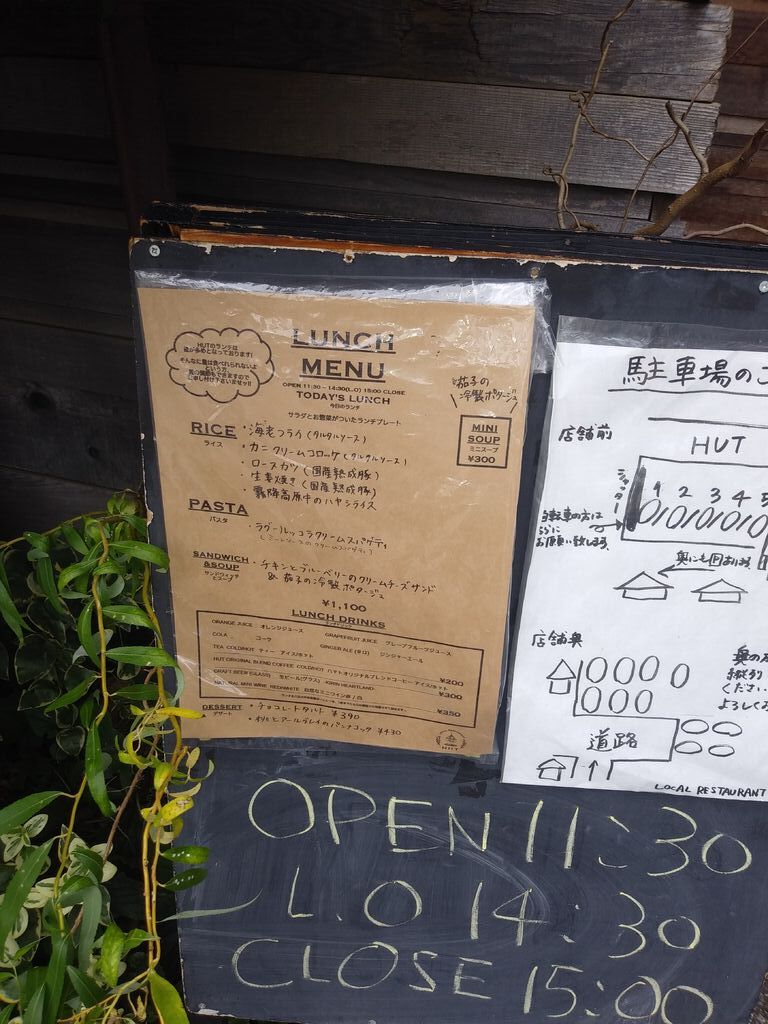 HUTのランチは
量が多めとなっております!
そんなに量は食べれられないよ
という方、
量の調節もできますので
お申し付け下さいませッ!!
LUNCH
MENU
OPEN 11:30 - 14:30(L.O) 15:00 CLOSE
TODAY'S LUNCH
今日のランチ
サラダとお惣菜がついたランチプレート
茄子の
冷製ポタージュ
MINI
SOUP
ミニスープ
¥300
RICE
ライス
・海老フライ(タルタルソース)
・カニクリームコロッケ(タルタルソース)
・ロースカツ(国産熟成豚)
・生姜焼き(国産熟成豚)
・霧降高原牛のハヤシライス
PASTA
パスタ
・ラグールッコラクリームスパゲティ
(ミートソースのクリームスパゲティ)
SANDWICH
&SOUP
サンドウィッチ
とスープ
・チキンとブルーベリーのクリームチーズサンド
& 茄子の冷製ポタージュ
¥1,100
LUNCH DRINKS
ORANGE JUICE オレンジジュース GRAPEFRUIT JUICE グレープフルーツジュース
COLA コーラ GINGER ALE (辛口) ジンジャーエール
TEA COLD/HOT ティー アイス/ホット ¥200
HUT ORIGINAL BLEND COFFEE COLD/HOT ハットオリジナルブレンドコーヒー アイス/ホット ¥300
CRAFT BEER (GLASS) 生ビール(グラス) KIRIN HEARTLAND
NATURAL MINI WINE RED/WHITE 自然なミニワイン赤/白 ¥350
DESSERT
デザート
・チョコレートタルト ¥390
・桃とアールグレイのパンナコッタ ¥430
HUT
駐車場のご
店舗前
HUT
シャッター
1 2 3 4 5
自転車の方は
お願い致します。
奥にもP有ります
店舗奥
奥の
縦列
ください
よろしく
道路
LOCAL RESTAURANT
OPEN 11:30
L.O 14:30
CLOSE 15:00